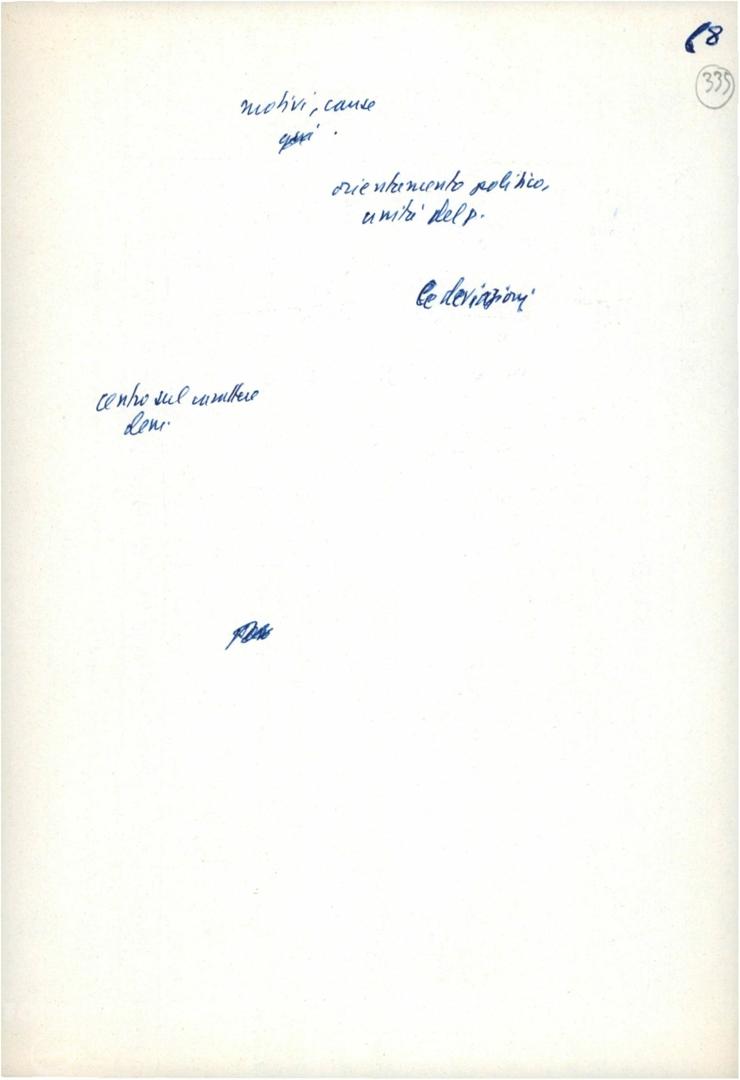 68
335
motivi, cause
orientamento politico,
unità del p.
le deviazioni
centro sul carattere
dem.